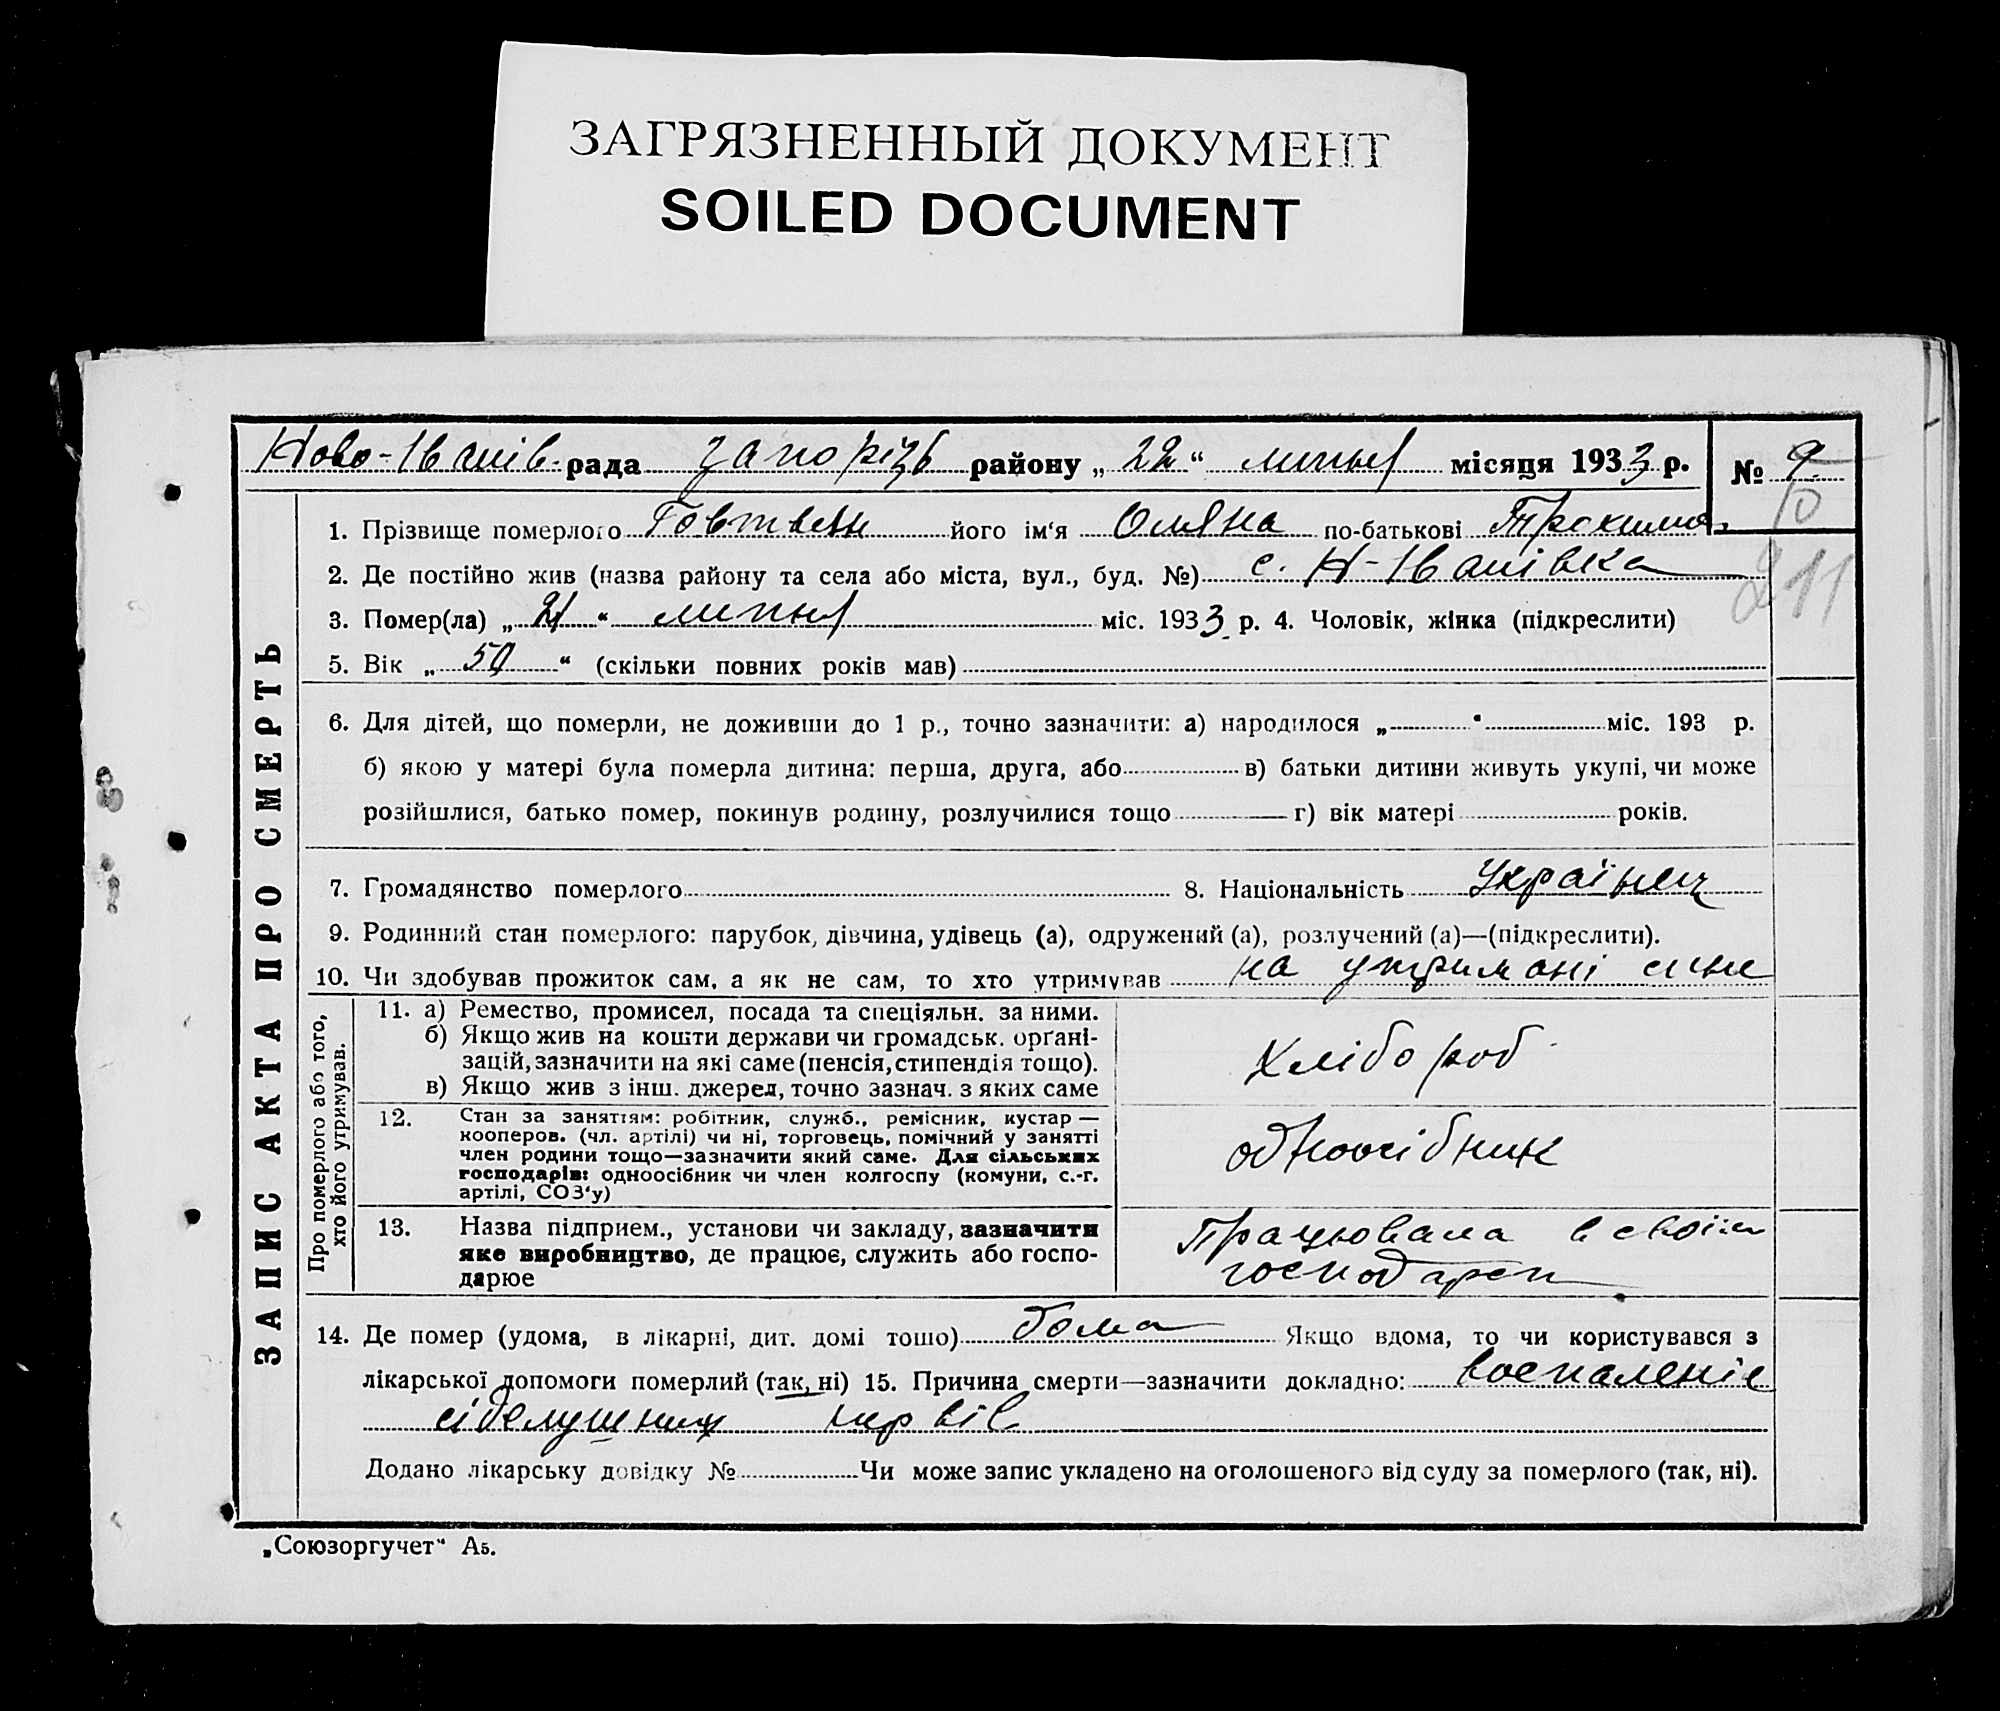 ЗАГРЯЗНЕННЫЙ ДОКУМЕНТ
SOILED DOCUMENT
Ново-Іванів. рада Запорізь району „22“ липня місяця 1933 р. № 9
10
211
ЗАПИС АКТА ПРО СМЕРТЬ
1. Прізвище померлого його ім'я Оляна по-батькові Трохимов.
2. Де постійно жив (назва району та села або міста, вул., буд. №) с. Н-Іванівка
3. Помер(ла) „21“ липня міс. 1933 р. 4. Чоловік, жінка (підкреслити)
5. Вік „59“ (скільки повних років мав)
6. Для дітей, що померли, не доживши до 1 р., точно зазначити: а) народилося „ “ міс. 193 р.
б) якою у матері була померла дитина: перша, друга, або в) батьки дитини живуть укупі, чи може
розійшлися, батько помер, покинув родину, розлучилися тощо г) вік матері років.
7. Громадянство померлого 8. Національність Українец
9. Родинний стан померлого: парубок, дівчина, удівець (а), одружений (а), розлучений (а)—(підкреслити).
10. Чи здобував прожиток сам, а як не сам, то хто утримував на утримані сина
Про померлого або того, хто його утримував.
11. а) Ремество, промисел, посада та спеціяльн. за ними.
б) Якщо жив на кошти держави чи громадськ. орґані-
зацій, зазначити на які саме (пенсія, стипендія тощо).
в) Якщо жив з інш. джерел, точно зазнач. з яких саме
Хлібороб
12. Стан за заняттям: робітник, служб., ремісник, кустар —
кооперов. (чл. артілі) чи ні, торговець, помічний у занятті
член родини тощо—зазначити який саме. Для сільських
господарів: одноосібник чи член колгоспу (комуни, с.-г.
артілі, СОЗ'у)
одноосібник
13. Назва підприєм., установи чи закладу, зазначити
яке виробництво, де працює, служить або госпо-
дарює
Працювала в своїм
господарст
14. Де помер (удома, в лікарні, дит. домі тощо) дома Якщо вдома, то чи користувався з
лікарської допомоги померлий (так, ні) 15. Причина смерти—зазначити докладно: воспаленіе
нервів
Додано лікарську довідку № Чи може запис укладено на оголошеного від суду за померлого (так, ні).
„Союзоргучет“ А5.